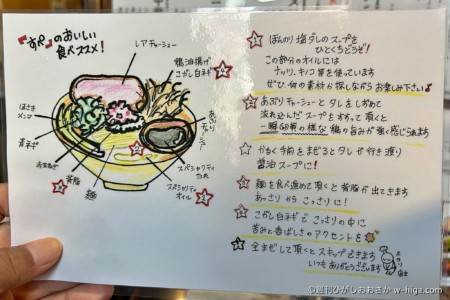 『すぺ』のおいしい
食べススメ!
レアチャーシュー
鶏油揚げ
こがし白ネギ
ほさき
メンマ
青ネギ
あぶり
チャーシュー
背脂
麺
スペシャリティ
たれ
スペシャリティ
オイル
1 ほんのり塩ダレのスープを
ひとくちどうぞ!
この部分のオイルには
ナッツ、キノコ等を使っています
ぜひ、何の素材か探しながらお楽しみ下さい♪
2 あぶりチャーシューとタレをしずめて
流れ込んだスープをすすって頂くと
鶏の旨みが強く感じられます
3 かるく手前をまぜるとタレが行き渡り
醤油スープに!
4 麺を食べ進めて頂くと背脂が出てきます
あっさりからこってりに!
5 こがし白ネギでこってりの中に
苦みと香ばしさのアクセントを
6 全まぜして頂くとスキップできます
いつもありがとうございます
店主
©週刊ひがしおおさか w-higa.com